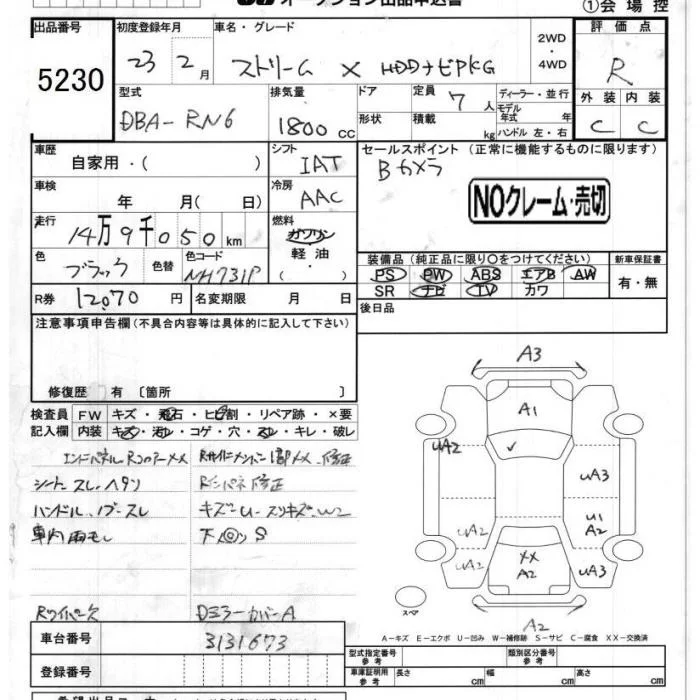 オークション出品申込書
①会場控
出品番号
5230
初度登録年月
23 2月
車名・グレード
ストリーム X HDDナビPKG
2WD
・
4WD
評価点
R
外装 内装
C C
型式
DBA-RN6
排気量
1800 cc
ドア
形状
定員 7人
積載 kg
ディーラー・並行
モデル
年式 年
ハンドル 左・右
車歴
自家用・( )
シフト
IAT
セールスポイント (正常に機能するものに限ります)
Bカメラ
NOクレーム・売切
車検
年 月( 日)
冷房
AAC
走行
14万9千050km
燃料
ガソリン
軽油
・( )
色
ブラック
色替
色コード
NH731P
装備品 (純正品に限り〇をつけてください)
PS PW ABS エアB AW
SR ナビ TV カワ
新車保証書
有・無
R券 12070円
名変期限 月 日
後日品
注意事項申告欄(不具合内容等は具体的に記入して下さい)
修復歴 有 〔箇所 〕
検査員
記入欄
FW キズ・飛石・ヒビ割・リペア跡・×要
内装 キズ・汚レ・コゲ・穴・スレ・キレ・破レ
エンドパネルRコアーXX
シートスレ、ヘタリ
ハンドル、ノブースレ
車内雨モレ
Rインパネ修正
キズーU-スリキズ、W2
下◎S
Rワイパー欠
DミラーカバーA
A3
A1
UA2
UA3
U1
A2
UA2
UA2
XX
A2
UA3
A2
スペア
A-キズ E-エクボ U-凹み W-補修跡 S-サビ C-腐食 XX-交換済
車台番号
3131673
登録番号
型式指定番号
参考
類別区分番号
参考
車庫証明用
参考
長さ cm
幅 cm
高さ cm